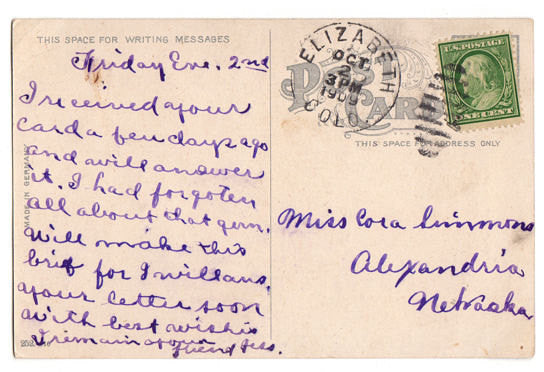 THIS SPACE FOR WRITING MESSAGES
Friday Eve. 2nd
I received your
card a few days ago
and will answer
it. I had forgoten
all about that germ.
Will make this
brief for I will ans.
your letter soon
with best wishis
I remain your
friend Jess.
MADE IN GERMANY
ELIZABETH
OCT
2
3 PM
1909
COLO.
POST CARD
U.S. POSTAGE
ONE CENT
THIS SPACE FOR ADDRESS ONLY
Miss Cora Simmons
Alexandria
Nebraska